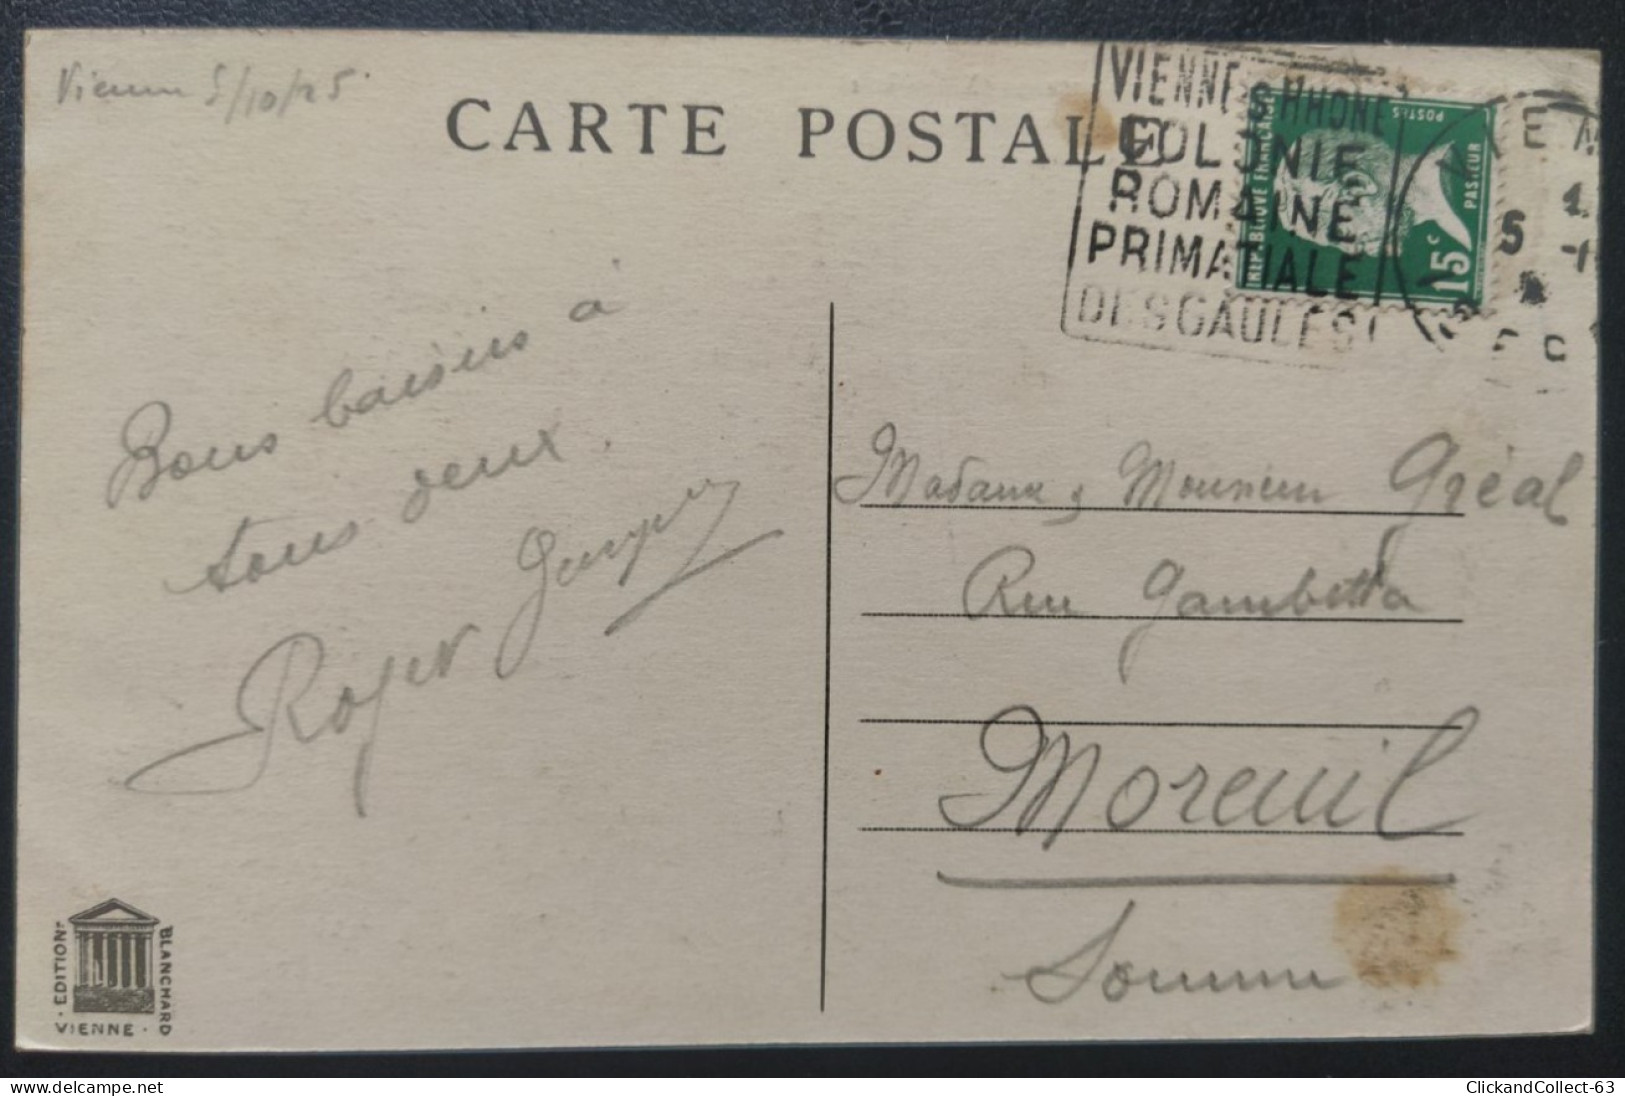 Vienne 5/10/25
CARTE POSTALE
VIENNE S/RHÔNE
COLONIE
ROMAINE
PRIMATIALE
DES GAULES
REPUBLIQUE FRANÇAISE
POSTES
PASTEUR
15c
Bons baisers à
tous deux.
Roger
Madame & Monsieur Gréal
Rue Gambetta
Moreuil
Somme
EDITION BLANCHARD
VIENNE
ClickandCollect-63